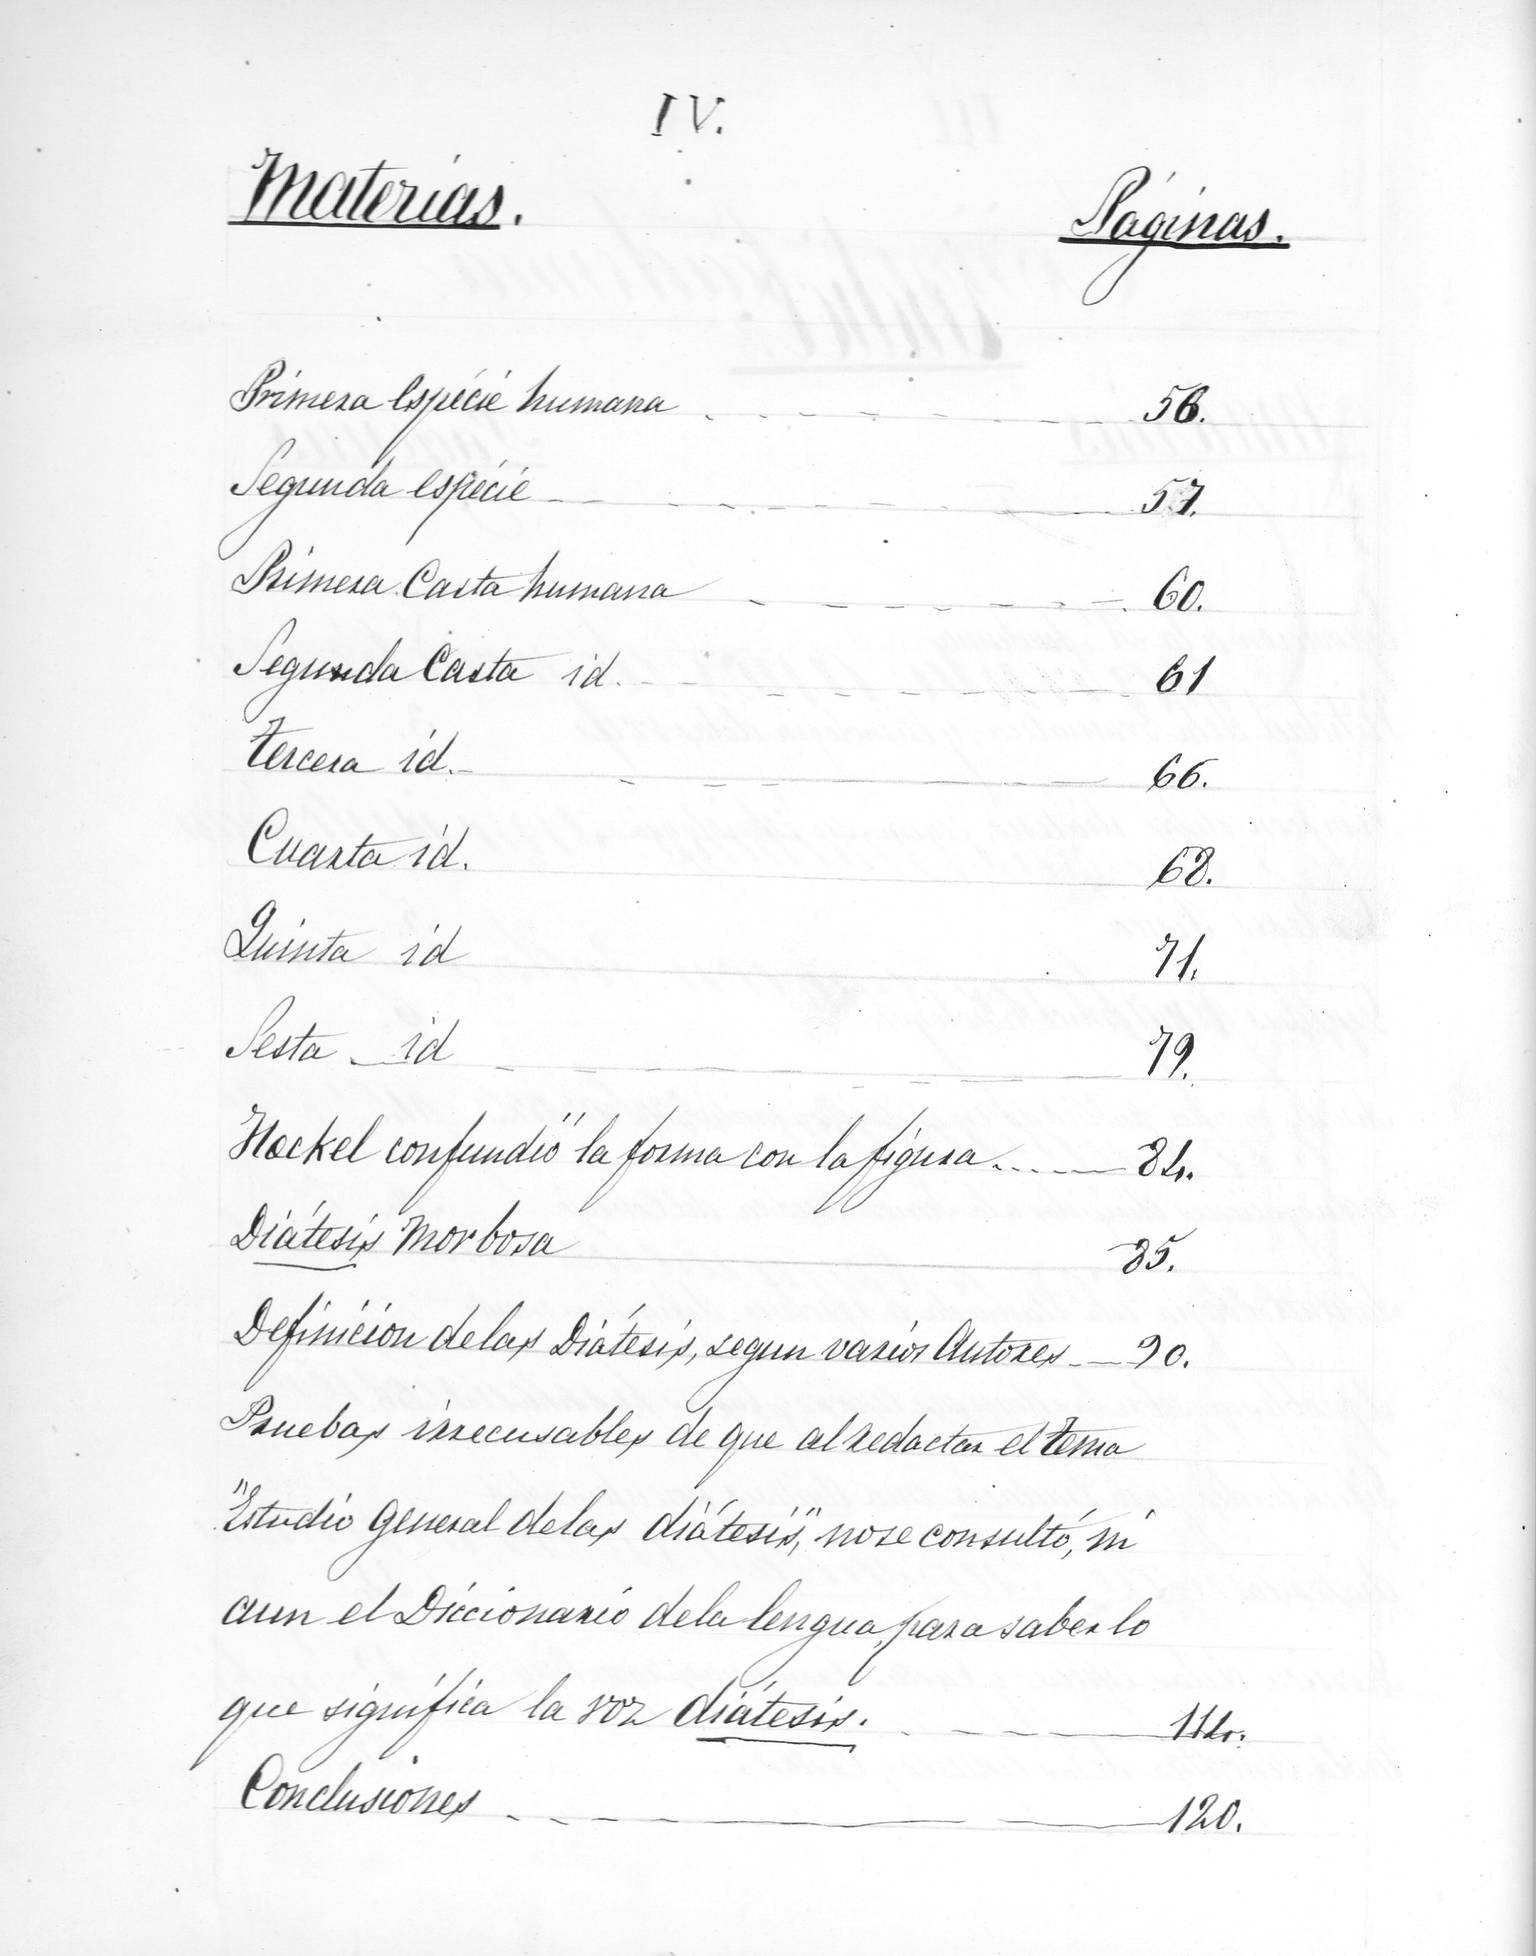 IV.
Materias. Páginas.
Primera espécie humana 56.
Segunda espécie 57.
Primera Casta humana 60.
Segunda Casta id. 61
tercera id. 66.
Cuarta id. 68.
Quinta id 71.
Sesta id 79.
Hockel confundió la forma con la figura 84.
Diátesis Morbosa 85.
Definicion de las Diátesis, segun varios Autores 90.
Pruebas irrecusables de que al redactar el tema
"Estudio General de las diátesis", no se consultó, ni
aun el Diccionario de la lengua, para saber lo
que significa la voz diátesis. 114.
Conclusiones 120.